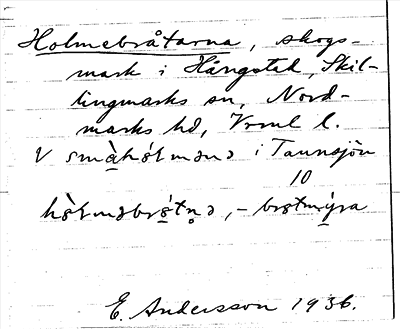 Holmebråtarna, skogs-
mark i Hängsted, Skil-
lingmarks sn, Nord-
marks hd, Vrml l.
V småhólmənə i Tannsjön
10
hòlməbrśtn̥ə, - brstmýra
E. Andersson 1936.